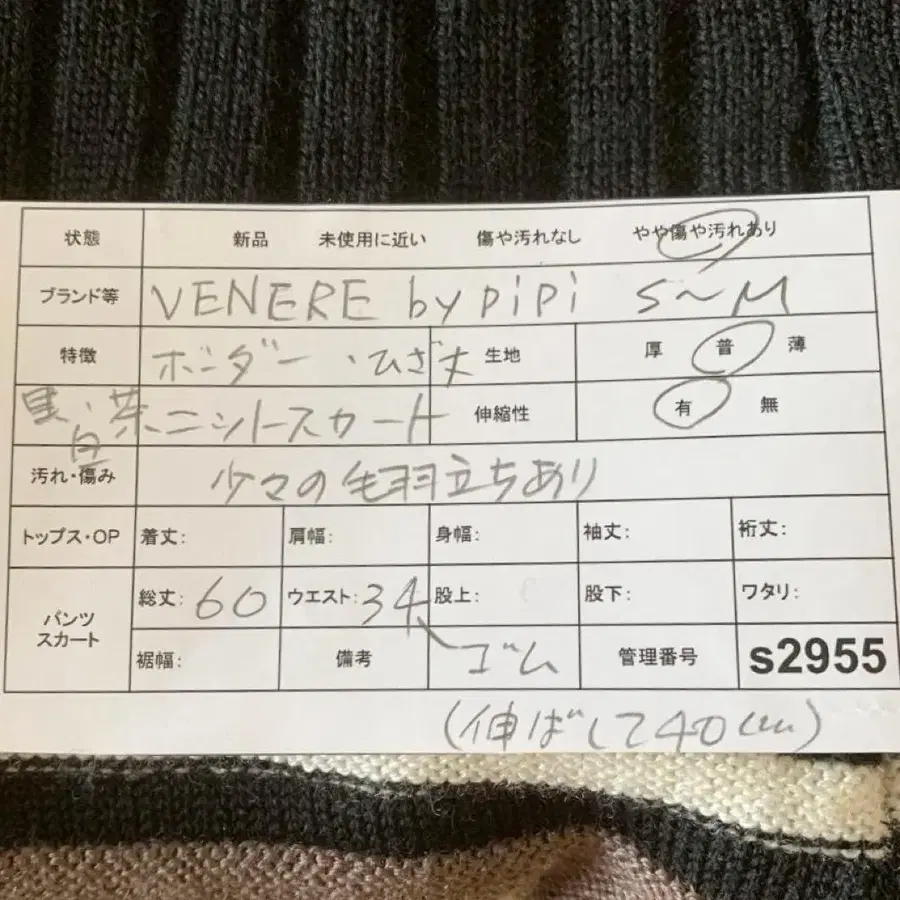 状態 新品 未使用に近い 傷や汚れなし やや傷や汚れあり
ブランド等 VENERE by pipi S〜M
特徴 ボーダー・ひざ丈 生地 厚 普 薄
黒・白・茶 ニットスカート 伸縮性 有 無
汚れ・傷み 少々の毛羽立ちあり
トップス・OP 着丈: 肩幅: 身幅: 袖丈: 裄丈:
パンツ スカート 総丈: 60 ウエスト: 34 股上: 股下: ワタリ:
裾幅: 備考 ゴム 管理番号 s2955
(伸ばして40cm)